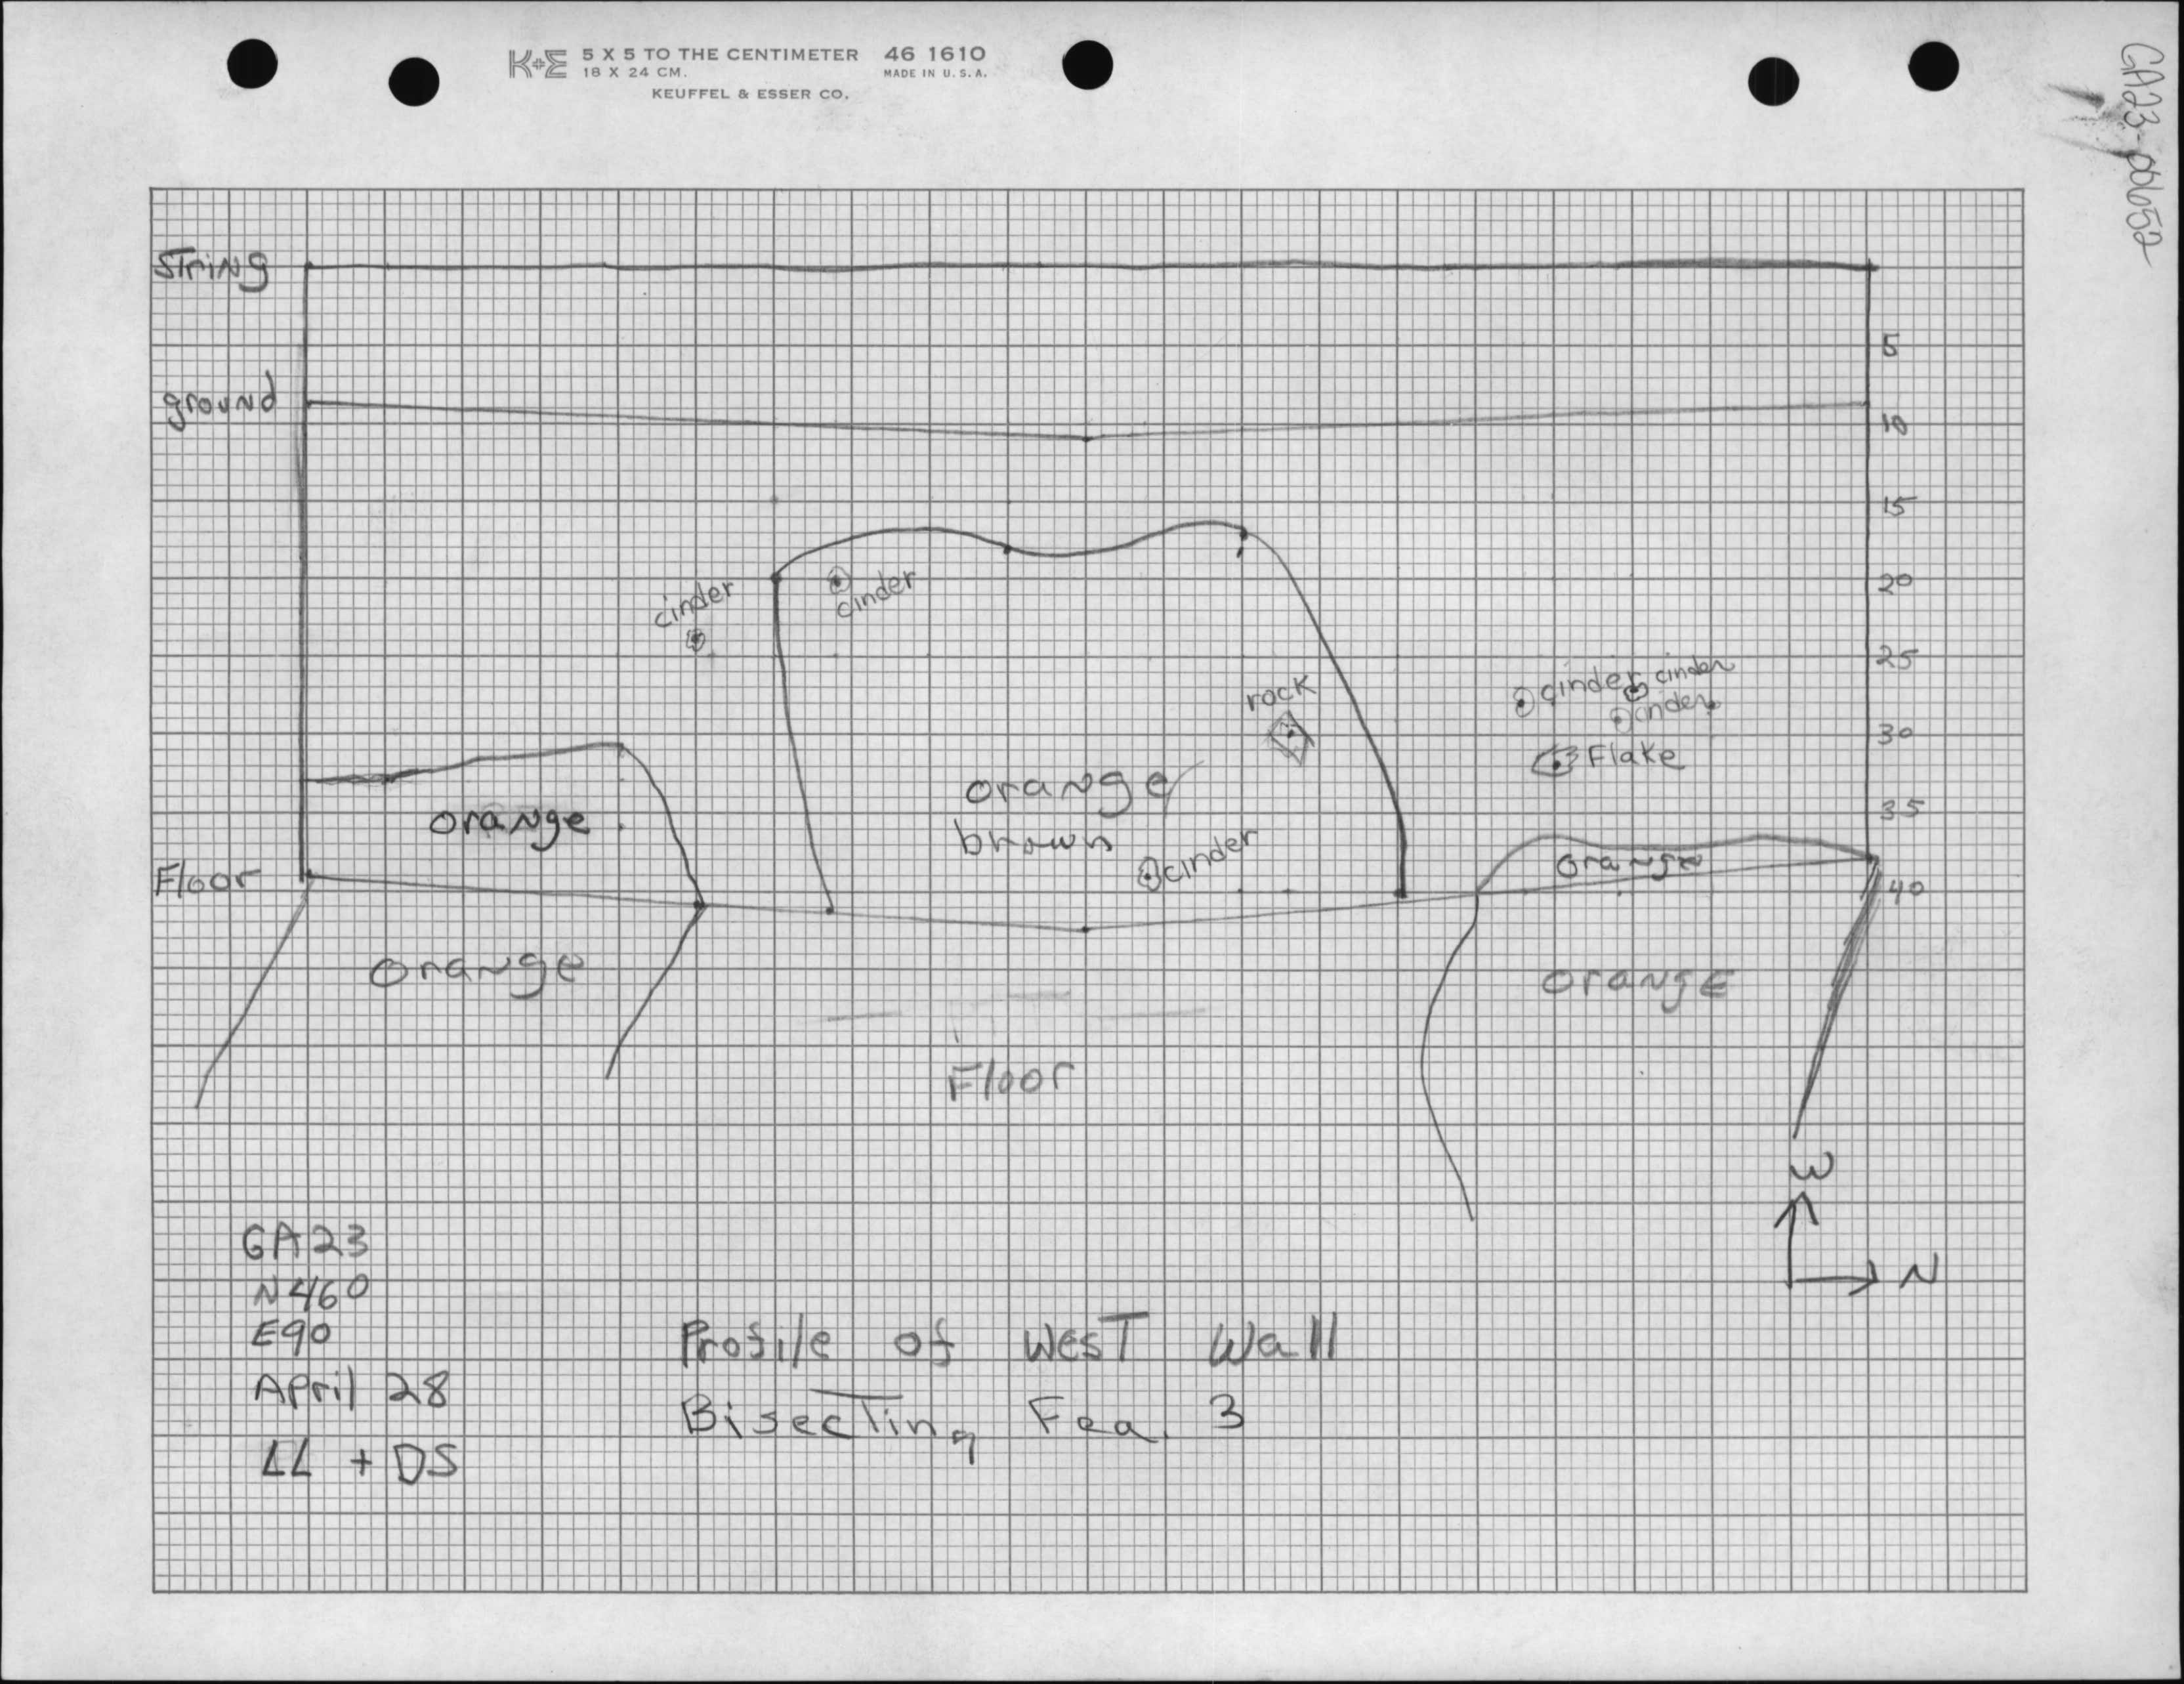 K+E 5 X 5 TO THE CENTIMETER 46 1610
18 X 24 CM. MADE IN U.S.A.
KEUFFEL & ESSER CO.
STriNg
5
ground
10
15
20
cinder
cinder
25
cinder cinder
cinder
rock
30
Flake
orange
brown
35
orange
cinder
orange
Floor
40
orange
orangE
Floor
W
N
GA23
N460
E90
April 28
LL + DS
Profile of WesT Wall
BisecTing Fea. 3